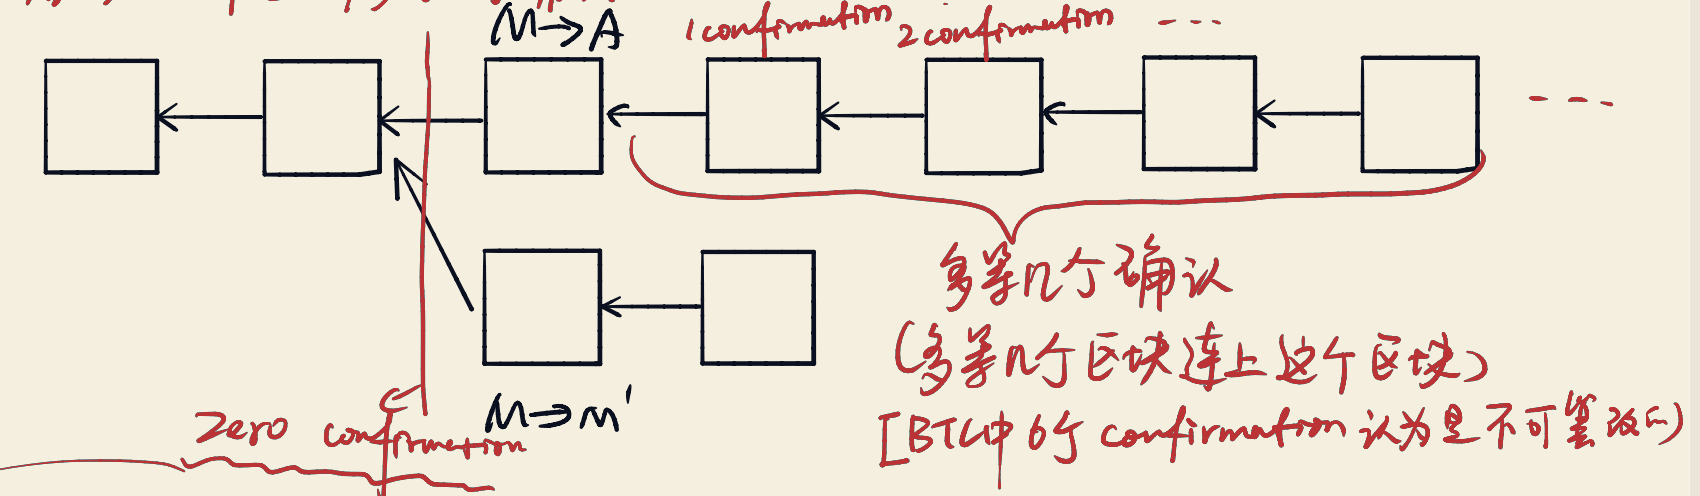 M→A
1 confirmation
2 confirmation
多等n个确认
(多等n个区块连上这个区块)
[BTC中6个confirmation认为是不可篡改的)
M→m'
Zero confirmation